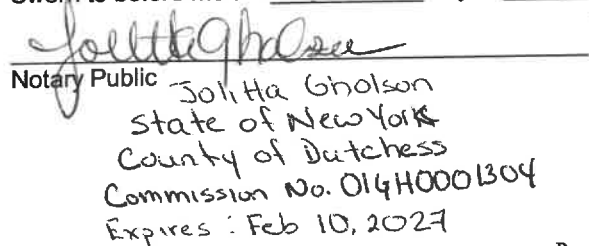 Jolitta Gholson
Notary Public
Jolitta Gholson
State of New York
County of Dutchess
Commission No. 01GH0001304
Expires : Feb 10, 2027